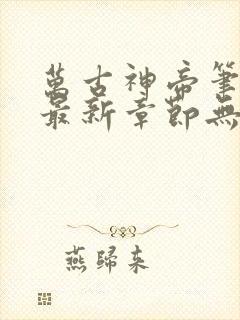 萬古神帝筆
最新章節無
燕歸來